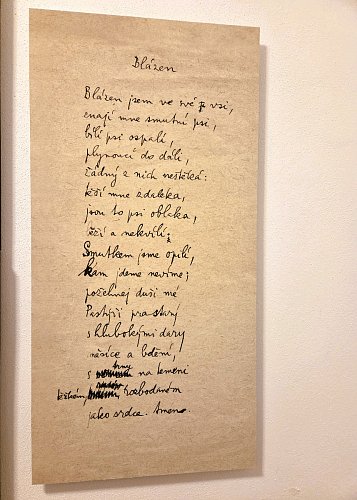 Blázen
Blázen jsem ve své vsi,
znají mne smutní psi,
bílí psi ospalí,
plynoucí do dáli,
žádný z nich neštěká:
těší mne zdaleka,
jsou to psi oblaka,
těší a nekvílí;
Smutkem jsme opilí,
kam jdeme nevíme;
požehnej duši mé
Pastýři prastarý
s hlubokými dary
měsíce a bdění,
s trny na temeni
těžkém, rozbodaném
jako srdce. Amen.